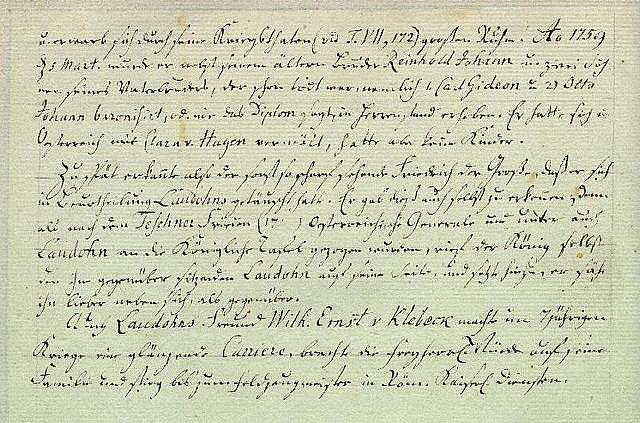 u. erwarb sich durch seine Kriegsthaten (vid T. VII, 172) großen Ruhm. Ao 1759
d 5 Mart. wurde er nebst seinem ältern Bruder Reinhold Johann u. zwei Söh
nen seines Vaterbruders, der schon todt war, nemlich 1. Carl Gideon u 2) Otto
Johann baronisirt, od. wie das Diplom sagt, in Herrenstand erhoben. Er hatte sich in
Österreich mit Clara v. Hagen vermält, hatte aber keine Kinder.
— Zu spät erkannte also der sonst so scharf sehende Friedrich der Große, daß er sich
in Beurtheilung Laudohns getäuscht hatte. Er gab dieß auch selbst zu erkennen, denn
als nach dem Teschner Frieden (17 ) Oesterreichische Generale und unter auch
Laudohn an die Königliche Tafel gezogen wurden, rief der König selbst
den ihm gegenüber sitzenden Laudohn auf seine Seite, und setzte hinzu, er sähe
ihn lieber neben sich, als gegenüber.
Auch Laudohns Freund Wilh. Ernst v Klebeck machte im 7jährigen
Kriege eine glänzende Carriere, brachte die freyherrl. Würde auf seine
Familie und stieg bis zum Feldzeugmeister in Röm. Kaiserl. Diensten.